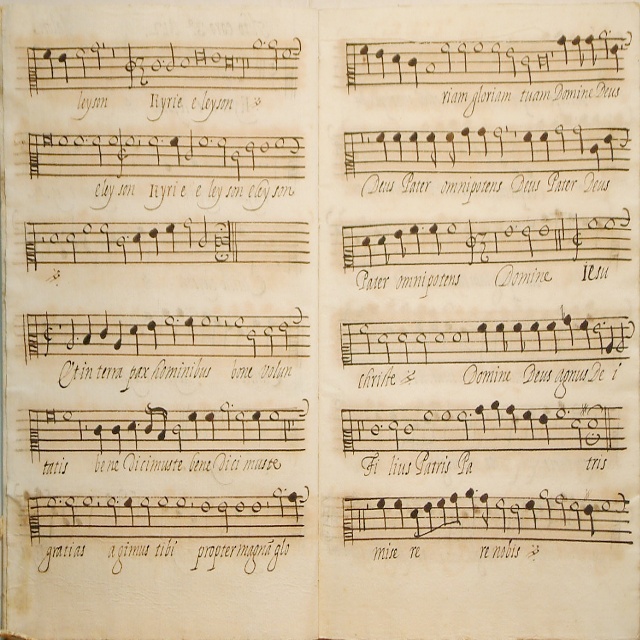 leyson Kyrie eleyson
eleyson Kyrie e leyson eleyson
Et in terra pax hominibus bone volun
tatis bene dicimuste bene dici muste
gratias agimus tibi propter magnã glo
riam gloriam tuam Domine Deus
Deus Pater omnipotens Deus Pater Deus
Pater omnipotens Domine Iesu
christe Domine Deus agnus De i
Fi lius Patris Pa tris
mise re re nobis